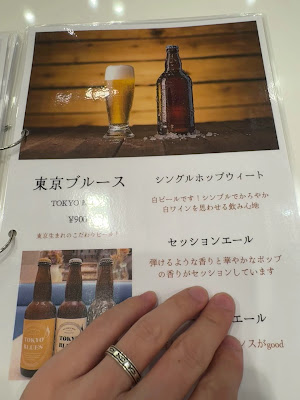 東京ブルース
TOKYO
¥900
東京生まれのこだわりビール!
シングルホップウィート
白ビールです!シンプルでかろやか
白ワインを思わせる飲み心地
セッションエール
弾けるような香りと華やかなホップ
の香りがセッションしています
エール
スがgood
TOKYO
BLUES
TOKYO
BLUES